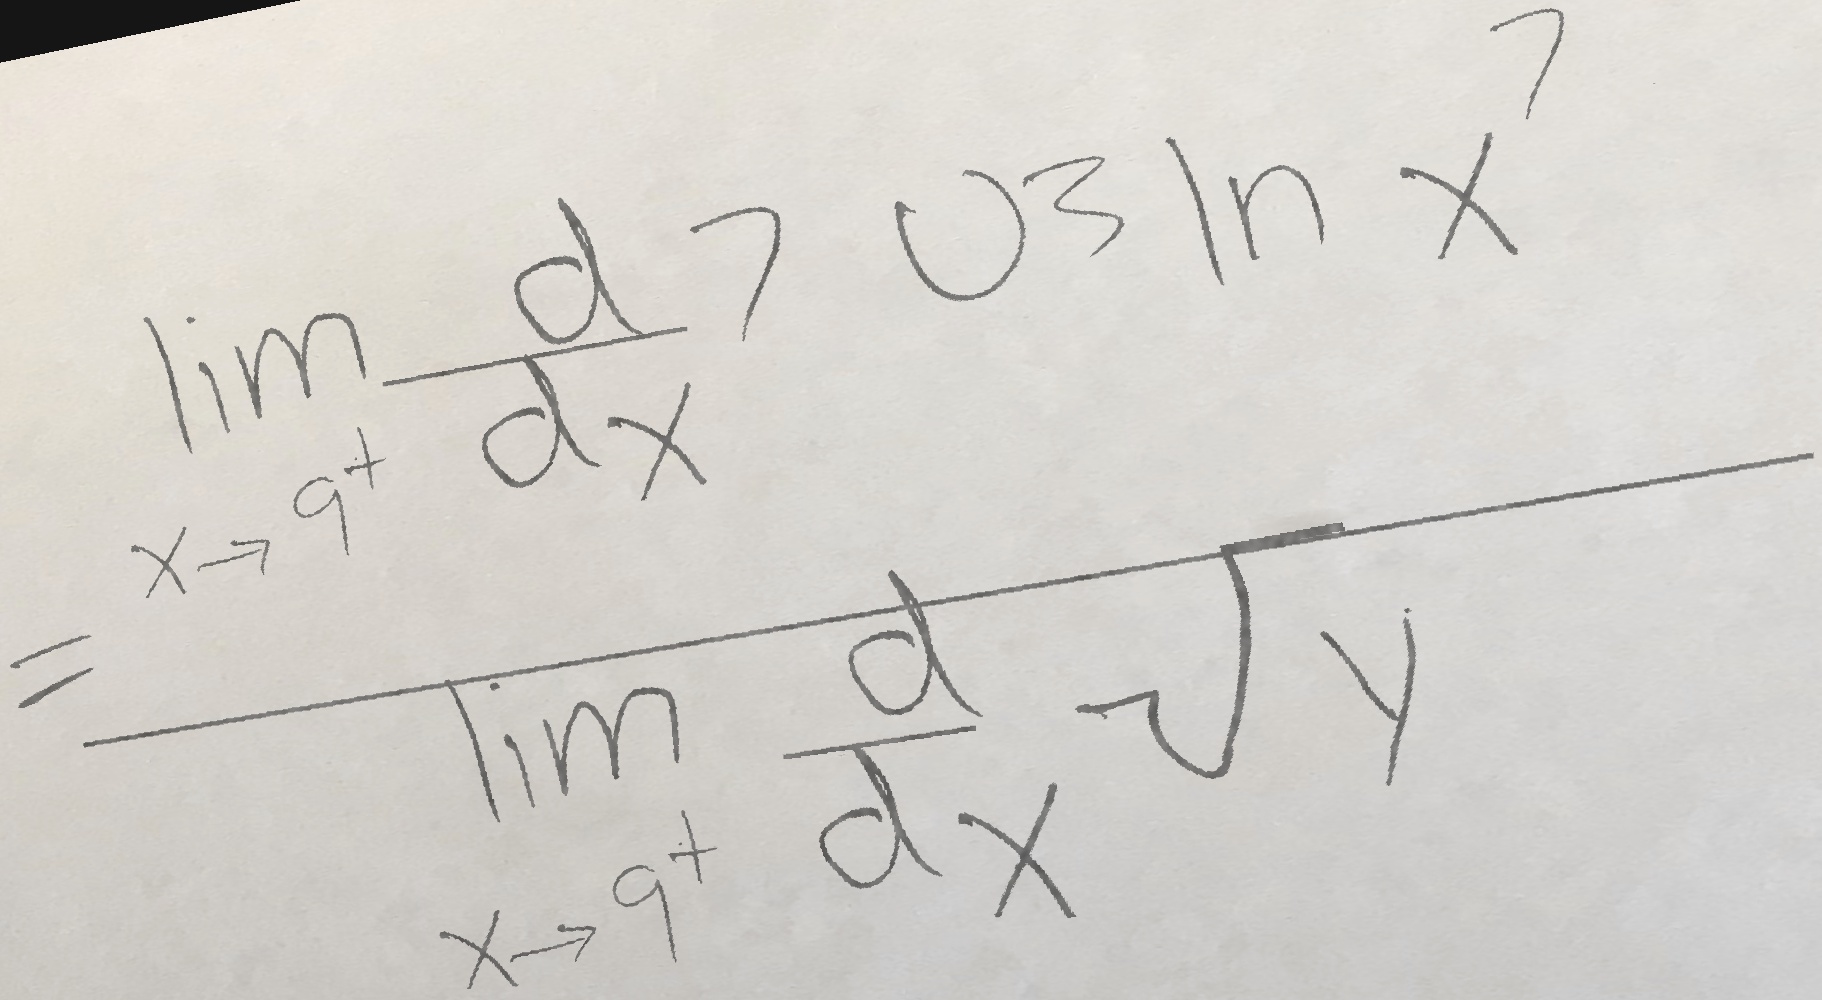 = \frac{\lim_{x \to 9^+} \frac{d}{dx} 7 \cdot 0^3 \ln x^7}{\lim_{x \to 9^+} \frac{d}{dx} \sqrt{y}}